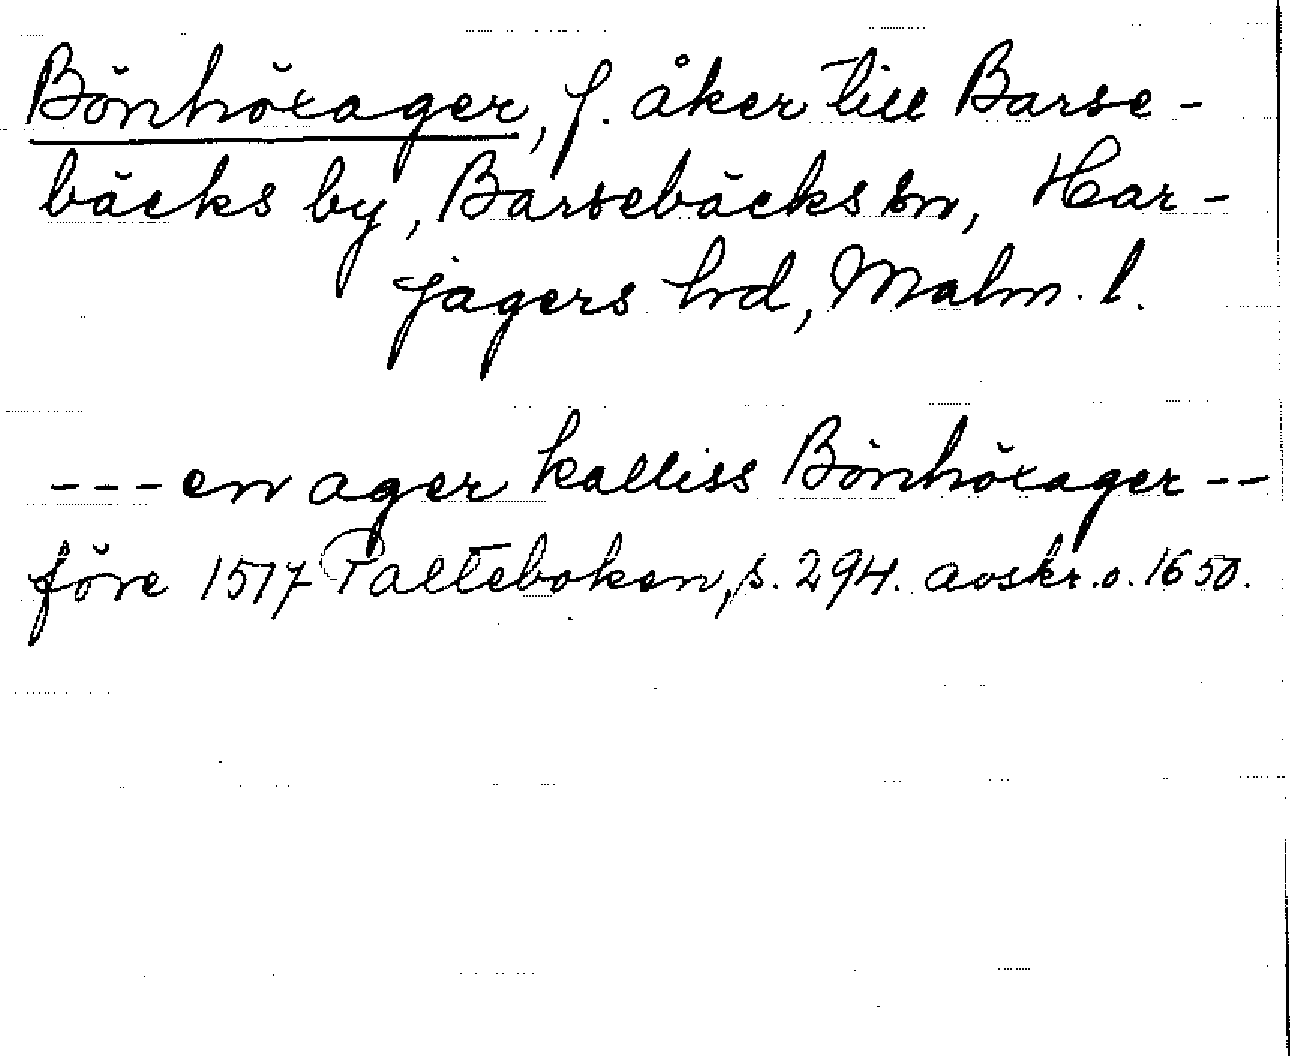 Bönhöxager, f. åker till Barse-
bäcks by, Barsebäcks sn, Har-
jagers hd, Malm. l.
---en ager kalliss Bönhöxager--
före 1517 Palteboken, s. 294. avskr. o. 1650.